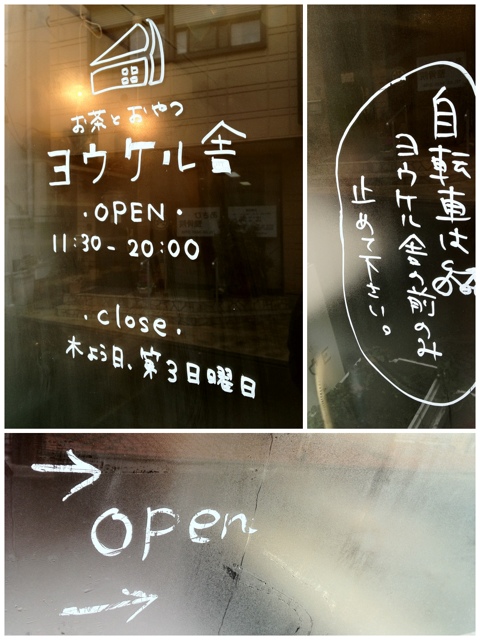 お茶とおやつ
ヨウケル舎
・OPEN・
11:30-20:00
・close・
木よう日、第3日曜日
自転車は
ヨウケル舎の前のみ
止めて下さい。
open